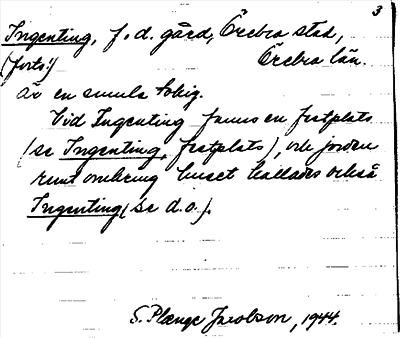 3
Ingenting, f. d. gård, Örebro stad,
(forts.) Örebro län.
är en smula tokig.
Vid Ingenting fanns en festplats
(se Ingenting, festplats), och jorden
runt omkring huset kallades också
Ingenting (se d.o.).
S. Plænge Jacobson, 1944.